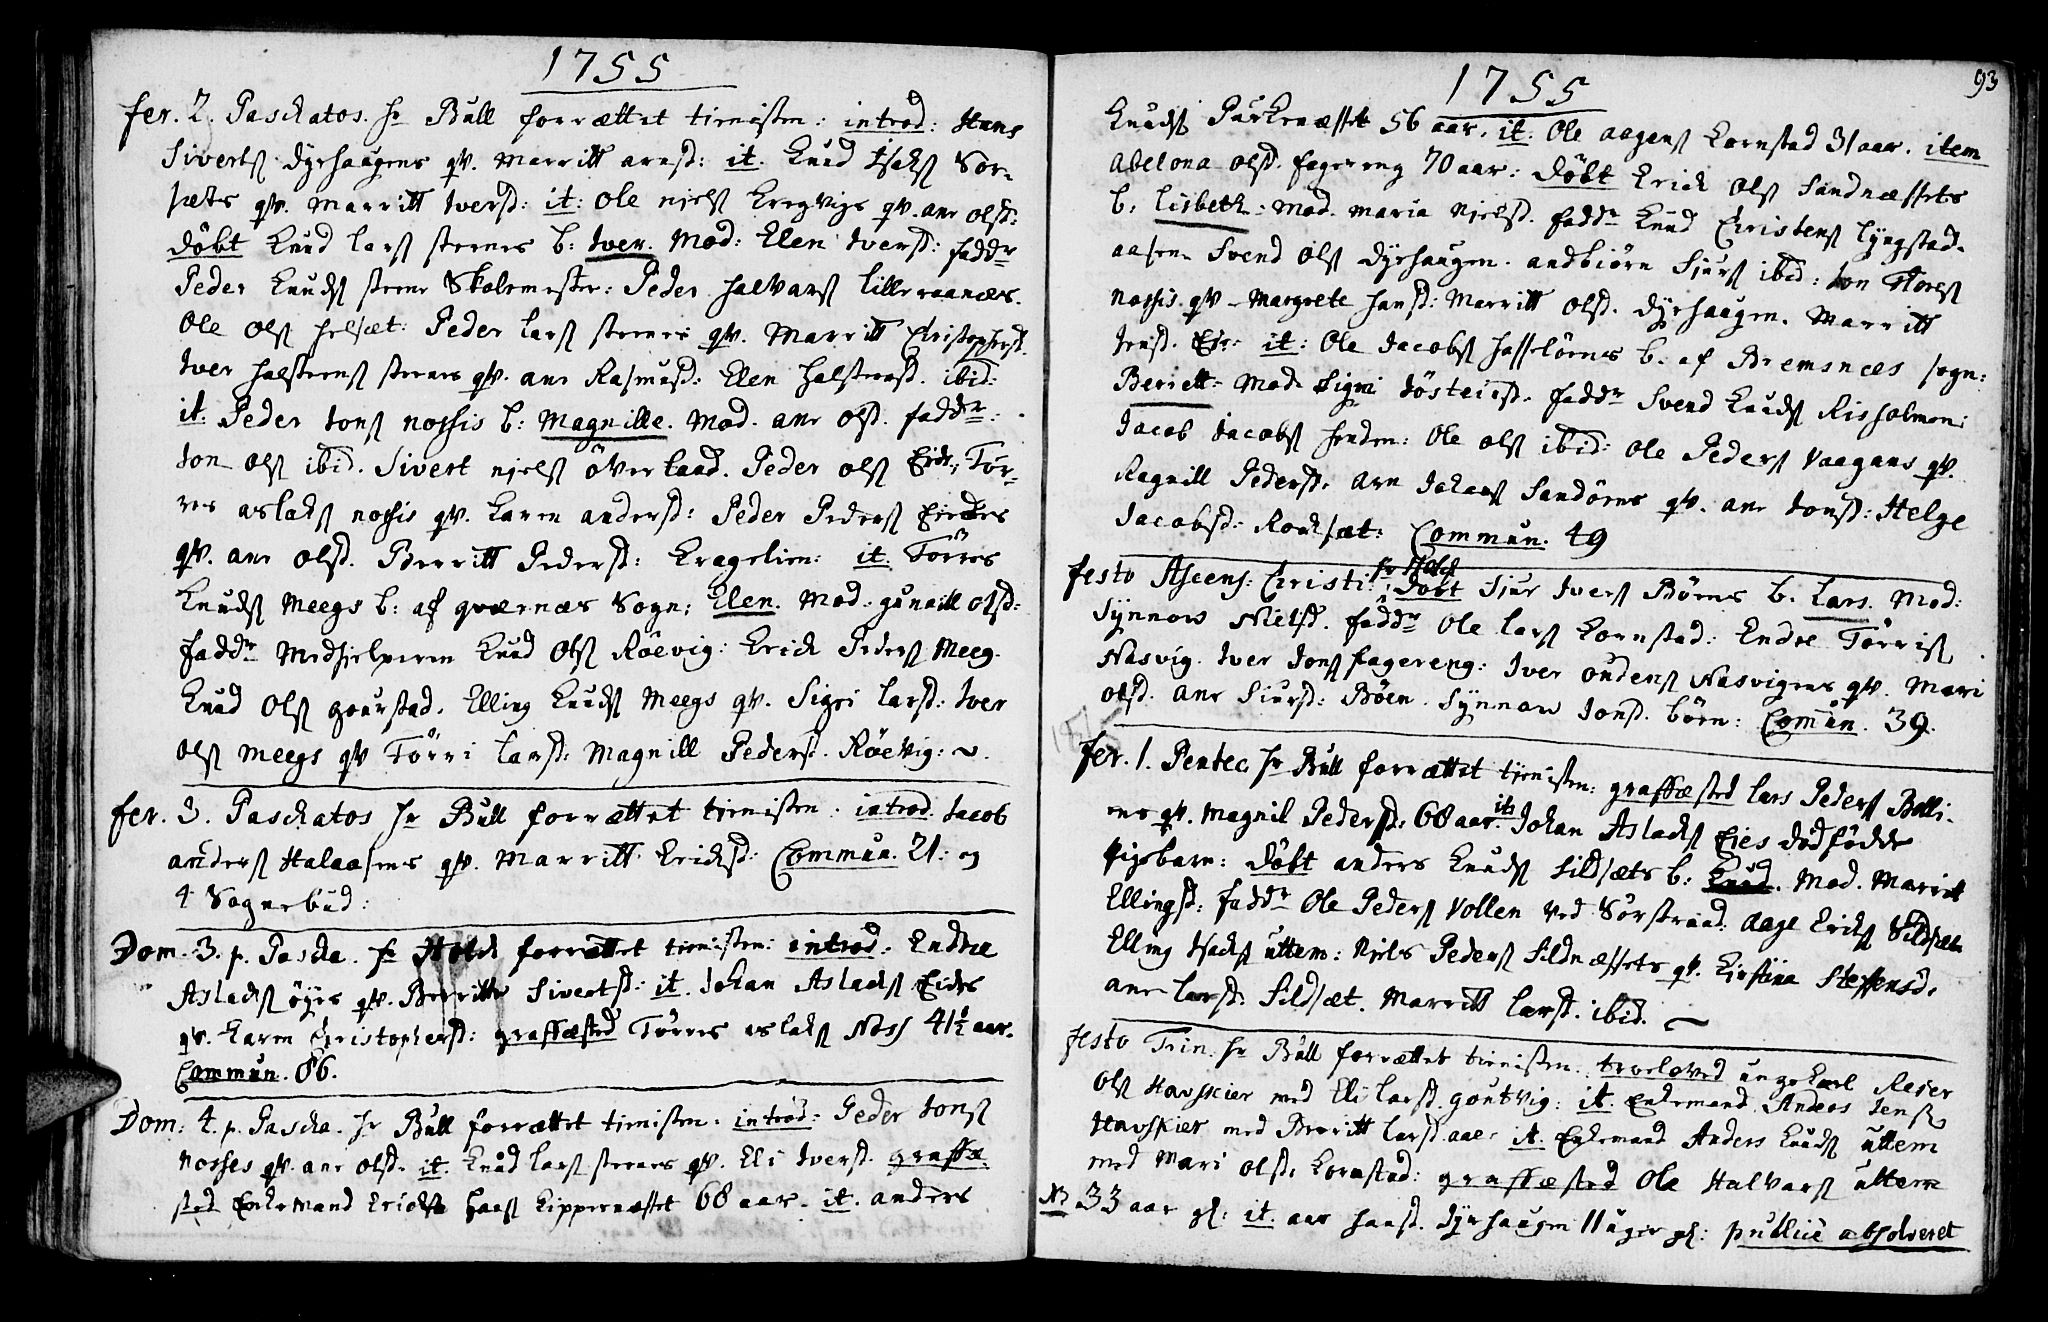 1755
fer. 2. Paschatos. hr Bull forrættet tienisten: introd: Hans
Sivertß dyrhaugens qv. Marritt arnsd: it. Knud Isakß Sør-
sæts qv. Marritt Iversd: it: Ole nielß Kregvigs qv. ane olsd:
Døbt Knud larß steenes b: Iver. Mod: Elen Iversd: faddr
Peder Knudß steene Skolemester: Peder halvarß lille raanæs.
Ole Olß helsæt: Peder larß steenes qv. Marritt Christophersd.
Iver halsteenß steenes qv. ane Rasmusd: Elen halsteensd. ibid:
it. Peder Jonß nossis b: Magnille. Mod. ane olsd. faddr:
Jon olß ibid. Sivert nielß överland. Peder olß Eide, Tør-
res aslakß nossis qv. Karen andersd: Peder Pederß Eides
qv. ane olsd. Berritt Pedersd: Kragelien: it. Törres
Knudß Meegs b: af qværnæs Sogn: Elen. Mod: gunnill Olsd:
faddr Medhielperen Knud Olß Röevig: Erich Pederß Meeg.
Knud Olß gourstad. Elling Knudß Meegs qv. Sigri larsd: Iver
olß Meegs qv Törri larsd: Magnill Pedersd. Röevig: ~.
fer. 3. Paschatos hr Bull forrættet tienisten: introd. Jacob
anderß Halaasens qv. Marritt Erichsd: Commun. 21: og
4 Sognebud:
Dom. 3. p. Pascha. hr Holch forrættet tienisten: introd: Endre
Aslachß öyes qv. Berritte Sivertsd: it. Johan Aslachß Eides
qv. Karen Christophersd: graffæsted Törres aslakß Noss 41½ aar.
Commun. 86.
Dom: 4. p. Pascha. hr Bull forrættet tienisten. introd: Peder Jonß
Nosses qv. ane olsd. it. Knud larß steenes qv. Eli Iversd. graffæ-
sted Enkemand Erich hanß Kippernæsset 68 aar. it. anders
1755
93
Knudß Purkenæsset 56 aar. it. Ole aagenß Kornstad 31 aar. item
Abelona olsd. fagereng 70 aar: Döbt Erich Olß Sandnæssets
b. Lisbeth: Mod. Maria Nielsd. faddr Knud Christenß lyngstad-
aasen. Svend Olß Dyrhaugen. andbiörn Siurß ibid: Jon Thorß
nossis. qv. Margrete hansd: Marritt olsd. Dyrhaugen. Marritt
Jensd. Eie: it: Ole Jacobß hasselöens b. af Bremsnæs sogn:
Beriett: Mod. Sigri Jösteinsd. faddr Svend Knudß Risholmen:
Jacob Jacobß henden: Ole olß ibid: Ole Pederß Vaagans qv.
Ragnill Pedersd. arn Johanß Sandöens qv. ane Jonsd: Helge
Jacobsd: Roksæt: Commun. 49
festo Ascens: Christi: hr Holch döbt Siur Iverß Böens b. Lars. Mod:
Synnow Nielsd. faddr Ole larß Kornstad: Endre Törrisß
Nasvig. Iver Jonß fagereng: Iver oudenß Nasvigens qv. Mari
olsd. ane Siursd: Böen. Synnow Jonsd. börn: Comun. 39.
fer. 1. Pentec. hr Bull forrættet tienisten: graffæsted lars Pederß Bolli-
ens qv. Magnil Pedersd: 68 aar. it. Johan Aslachß Eies dödfödde
Pigebarn: Döbt anders Knudß Sildsæts b: Knud. Mod. Marritt
Ellingsd: faddr Ole Pederß Vollen ved Sörstrand. aage Erichß Sildsæt.
Elling Isachß uttem: Niels Pederß Sildnæssets qv. Kirstina Steffensd.
ane larsd: Sildsæt. Marritt larsd. ibid. ~
festo Trin. hr Bull forrættet tienisten. trolæved ungekarl Reier
Olß Havskier med Eli larsd. goutvig: it. Enkemand Anders Jensß
Havskier med Berritt larsd. aae. it. Enkemand Anders Knudß uttem
med Mari olsd. Kornstad: graffæsted Ole Halvarß uttem
NB 33 aar gl. it. ane hansd. dyrhaugen 11 uger gl: publicè absolveret